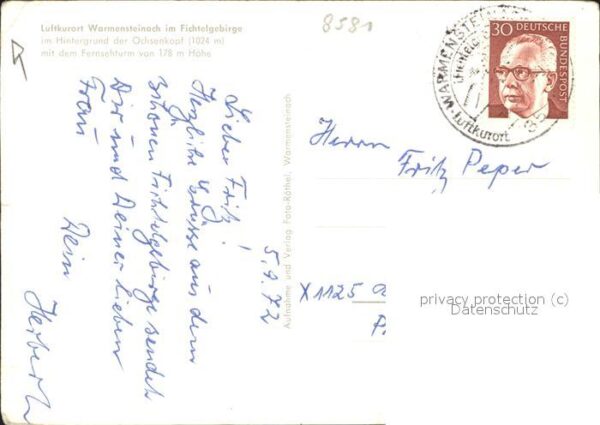 Luftkurort Warmensteinach im Fichtelgebirge
im Hintergrund der Ochsenkopf (1024 m)
mit dem Fernsehturm von 178 m Höhe
8581
Lieber Fritz!
Herzliche Grüsse aus dem
schönen Fichtelgebirge sendet
Dir und Deiner lieben
Frau
Dein
Herbert
5.9.72
Aufnahme und Verlag Foto-Röthel, Warmensteinach
WARMENSTEINACH
Luftkurort
30 DEUTSCHE
BUNDESPOST
Herrn
Fritz Peper
X1125
privacy protection (c)
Datenschutz